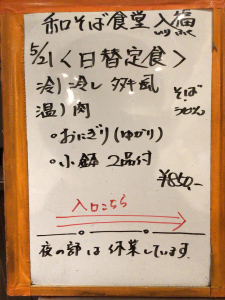 和そば食堂 入福
5/21 <日替定食>
冷) 冷し タヌキ風
温) 肉
そば
うどん
○おにぎり(ゆかり)
○小鉢 2品付
¥850.-
入口こちら
夜の部は休業しています.